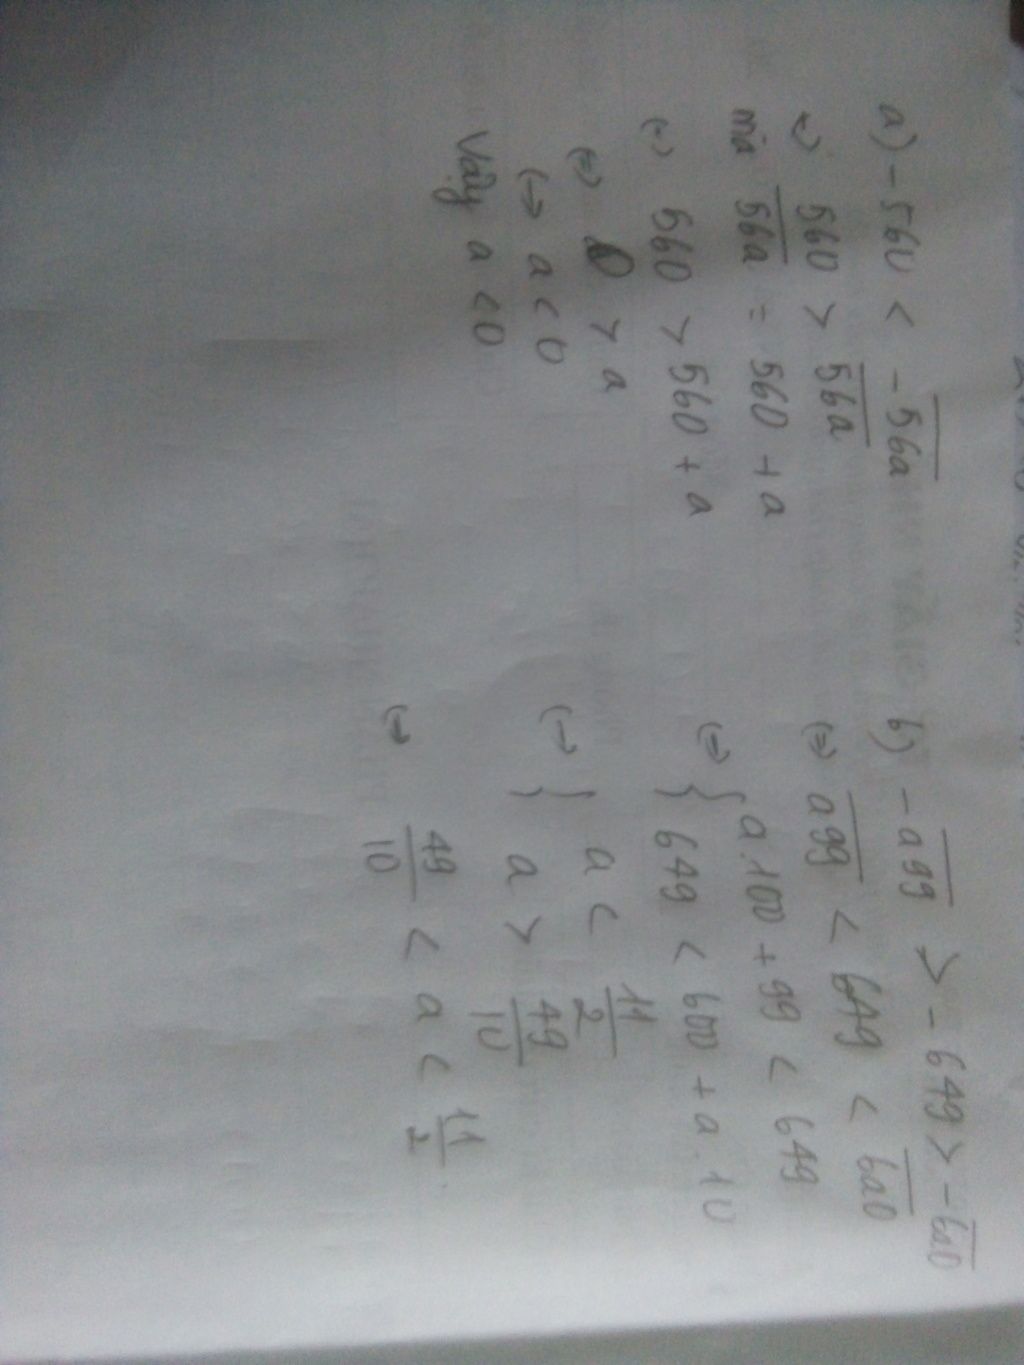 a) -560 < -56a
(=) 560 > 56a
mà 56a = 560 + a
(=) 560 > 560 + a
(=) 0 > a
(=) a < 0
Vậy a < 0
b) -a99 > -649 > -6a0
(=) a99 < 649 < 6a0
(=) { a.100 + 99 < 649
649 < 600 + a.10
(=) { a < 11/2
a > 49/10
(=) 49/10 < a < 11/2